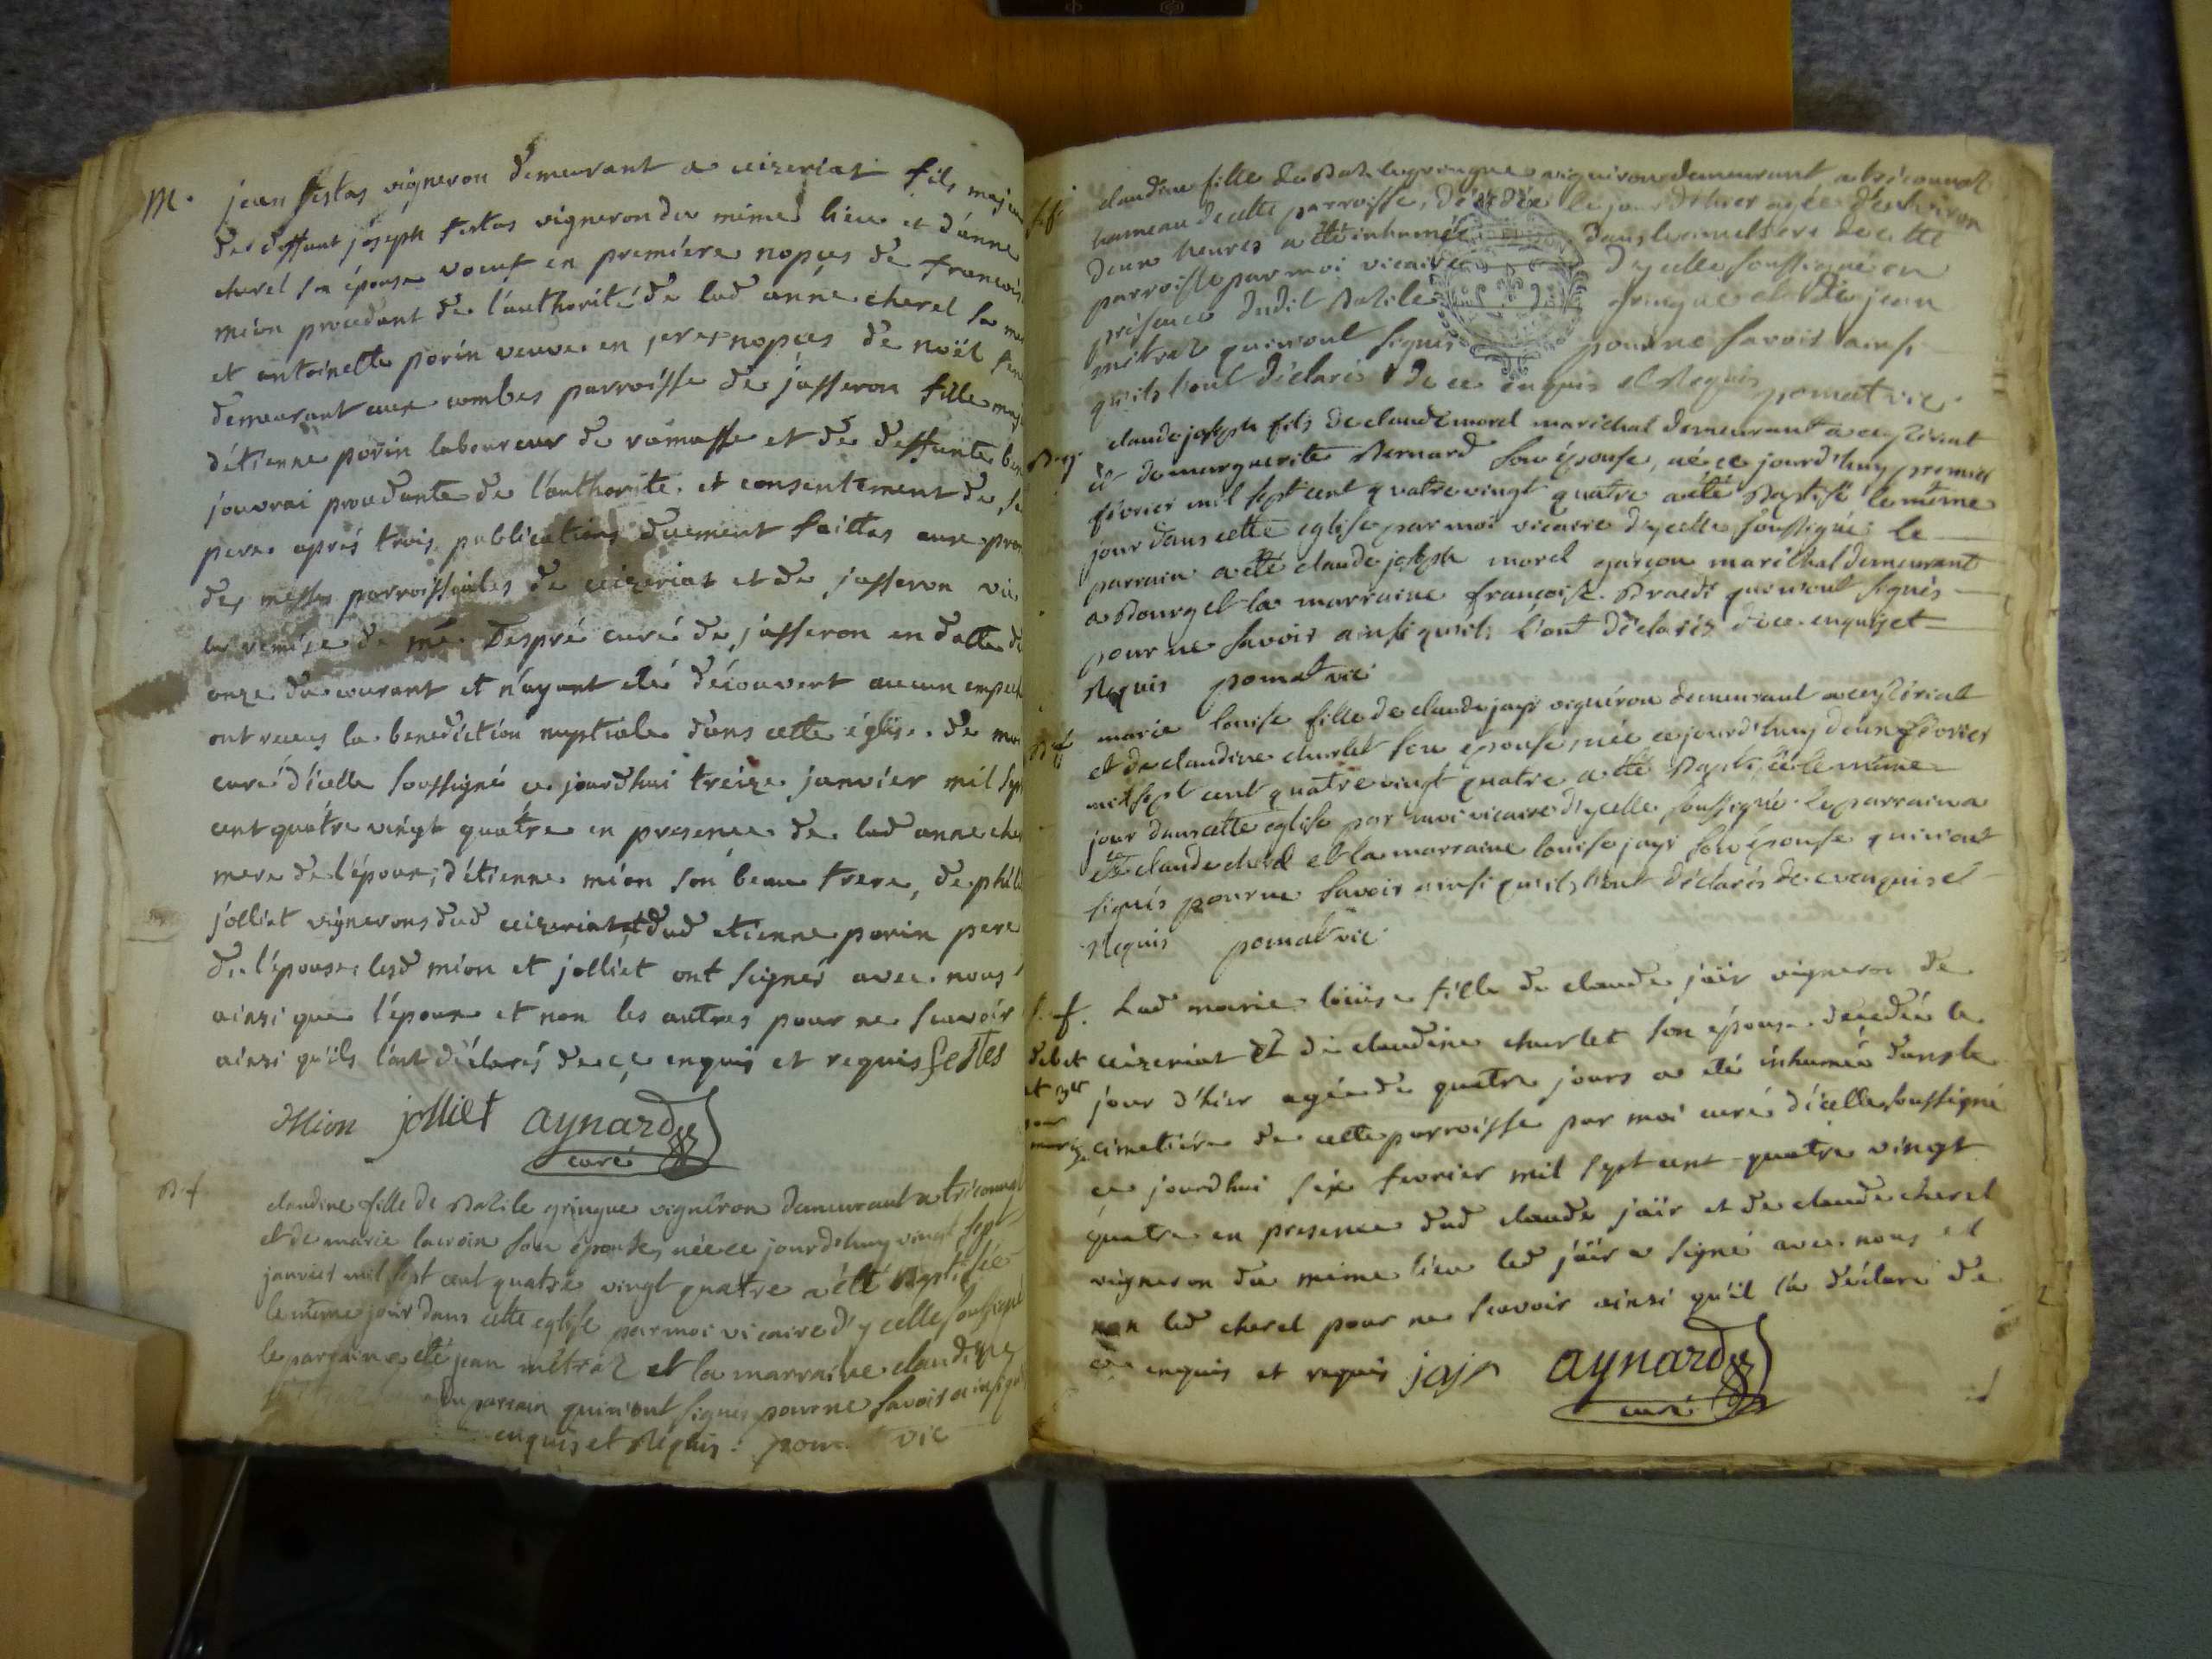 M. jean festas vigneron demeurant a ceizeriat fils majeu
de deffunt joséph festas vigneron du même lieu et d'anne
cherel son épouse voeuf en première nopces de francois
mion procedant de l'authorité de lad anne cherel sa me
et antoinette porin veuve en jeres nopces de noël
demeurant aux combes parroisse de jasseron fille maj
d'étienne porin laboureur de ramasse et de deffunte
jouvrai procedante de l'authorite et consentement de
pere aprés trois publications duement faittes aux pro
des messes parroissiales de ceizeriat et de jasseron
la remise de me Despré curé de jasseron en datte
onze du courant et n'ayant été découvert aucun empech
ont receus la benediction nuptiale dans cette église de
curé d'icelle soussigné ce jourdhui treize janvier mil sept
cent quatre vingt quatre en presence de lad anne che
mere de l'époux, d'étienne mion son beau frere, de
jolliet vignerons dud ceizeriat, dud etienne porin pere
de l'épouse lesd mion et jolliet ont signés avec nous
ainsi que l'époux et non les autres pour ne scavoir
ainsi qu'ils l'ont déclarés de ce enquis et requis festes
Mion jolliet aynard
curé
B. f claudine fille de Bazile gringue vigneron demeurant a
et de marie lacroix son épouse, née ce jourd'huy vingt sept
janvier mil sept cent quatre vingt quatre a été Baptisée
le même jour dans cette eglise par moi vicaire d'ycelle soussigné
le parrain a été jean métraz et la marraine claudine
du parrain qui n'ont signés pour ne savoir ainsi qu
enquis et Réquis. vic
claudine fille de Bazile gringue vigneron demeurant a
hameau de cette parroisse, décédée le jour d'hier agée d'environ
deux heures a été inhumée dans le cimetiere de cette
parroisse par moi vicaire d'ycelle soussigné en
présence dudit Bazile gringue et de jean
métraz qui n'ont signés pour ne savoir ainsi
qu'ils l'ont déclarés de ce enquis et Requis pomat vic
claude joseph fils de claude morel maréchal demeurant a ceyzériat
et de marguerite Bernard son épouse, né ce jourd'huy premier
février mil sept cent quatre vingt quatre a été Baptisé le même
jour dans cette eglise par moi vicaire d'ycelle soussigné le
parrain a été claude joseph morel garçon maréchal demeurant
a Bourg et la marraine françoise qui n'ont signés
pour ne savoir ainsi qu'ils l'ont déclarés de ce enquis et
Requis pomat vic
B. f marie louise fille de claude jayr vigneron demeurant a ceyzériat
et de claudine charlet son épouse, née ce jourd'huy deux février
mil sept cent quatre vingt quatre a été Baptisée le même
jour dans cette eglise par moi vicaire d'ycelle soussigné le parrain a
été claude cherel et la marraine louise jayr son épouse qui n'ont
signés pour ne savoir ainsi qu'ils l'ont déclarés de ce enquis et
Requis pomat vic
f. Lad marie loüise fille de claude jaïr vigneron de
ceizeriat et de claudine charlet son épouse decedée le
jour d'hier agée de quatre jours a été inhumée dans le
cimetiére de cette parroisse par moi curé d'icelle soussigné
ce jourdhui six fevrier mil sept cent quatre vingt
quatre en presence dud claude jaïr et de claude cherel
vigneron du même lieu led jaïr a signé avec nous et
non led cherel pour ne scavoir ainsi qu'il l'a déclaré de
ce enquis et requis jayr aynard
curé